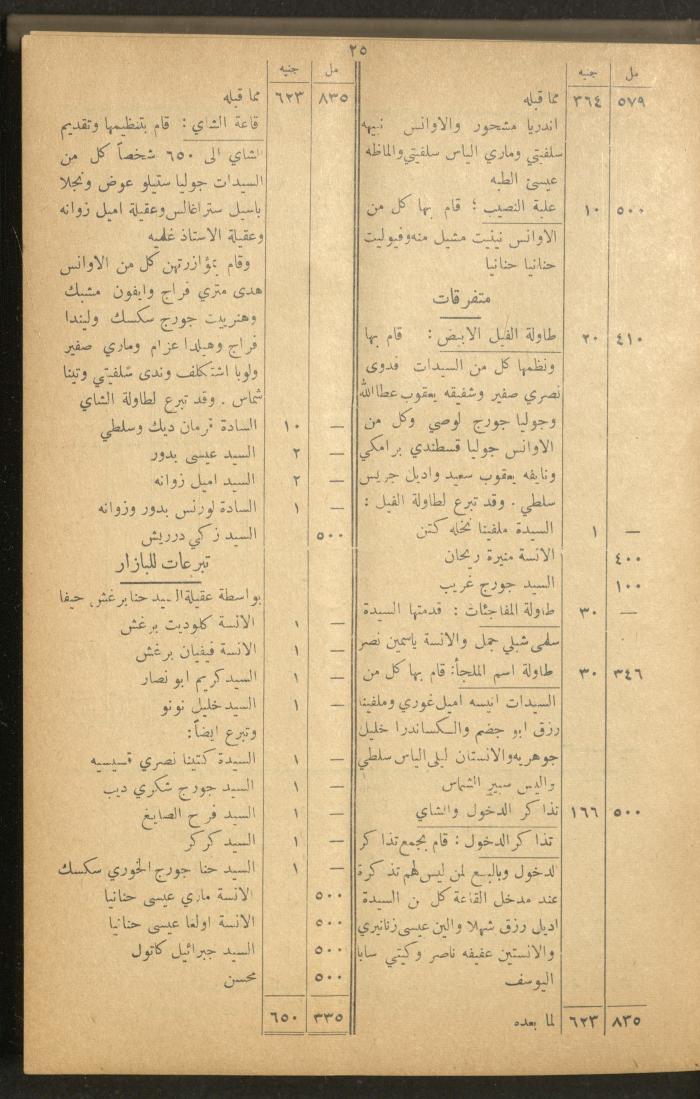 ٢٥
مل جنيه
٥٧٩ ٣٦٤ مما قبله
اندريا مشحور والاوانس نبيهه
سلفيتي وماري الياس سلفيتي والماظه
عيسى الطبه
٥٠٠ ١٠ علبة النصيب : قام بها كل من
الاوانس نينيت مشيل منه وفيوليت
حنانيا حنانيا
متفرقات
٤١٠ ٢٠ طاولة الفيل الابيض : قام بها
ونظمها كل من السيدات فدوى
نصري صفير وشفيقه يعقوب عطاالله
وجوليا جورج لوصي وكل من
الاوانس جوليا قسطندي برامكي
ونايفه يعقوب سعيد واديل جريس
سلطي . وقد تبرع لطاولة الفيل :
— ١ السيدة ملفينا نخله كتن
٤٠٠ الانسة منيرة ريحان
١٠٠ السيد جورج غريب
— ٣٠ طاولة المفاجئات : قدمتها السيدة
سلمى شبلي جمل والانسة ياسمين نصر
٣٤٦ ٣٠ طاولة اسم الملجأ : قام بها كل من
السيدات انيسه اميل غوري وملفينا
رزق ابو جضم والكساندرا خليل
جوهريه والانستان ليلى الياس سلطي
واليس سبير الشماس
٥٠٠ ١٦٦ تذاكر الدخول والشاي
تذاكر الدخول : قام بجمع تذاكر
الدخول وبالبيع لمن ليس لهم تذكرة
عند مدخل القاعة كل من السيدة
اديل رزق شهلا والين عيسى زنانيري
والانستين عفيفه ناصر وكيتي سابا
اليوسف
٨٣٥ ٦٢٣ لما بعده
مل جنيه
٨٣٥ ٦٢٣ مما قبله
قاعة الشاي : قام بتنظيمها وتقديم
الشاي الى ٦٥٠ شخصاً كل من
السيدات جوليا ستيلو عوض ونجلا
باسيل ستراغالس وعقيلة اميل زوانه
وعقيلة الاستاذ غلميه
وقام بمؤازرتهن كل من الاوانس
هدى متري فراج وايفون مشبك
وهنرييت جورج سكسك وليندا
فراج وهيلدا عزام وماري صفير
ولوبا اشتكلف وندى سلفيتي وتينا
شماس . وقد تبرع لطاولة الشاي
— ١٠ السادة فرمان ديك وسلطي
— ٢ السيد عيسى بدور
— ٢ السيد اميل زوانه
— ١ السادة لورنس بدور وزوانه
٥٠٠ السيد زكي درريش
تبرعات للبازار
بواسطة عقيلة السيد حنا برغش حيفا
— ١ الانسة كلوديت برغش
— ١ الانسة فيفيان برغش
— ١ السيد كريم ابو نصار
— ١ السيد خليل نونو
وتبرع ايضاً :
— ١ السيدة كتينا نصري قسيسيه
— ١ السيد جورج شكري ديب
— ١ السيد فرح الصايغ
— ١ السيد كركر
— ١ السيد حنا جورج الخوري سكسك
٥٠٠ الانسة ماري عيسى حنانيا
٥٠٠ الانسة اولغا عيسى حنانيا
٥٠٠ السيد جبرائيل كاتول
٥٠٠ محسن
٣٣٥ ٦٥٠